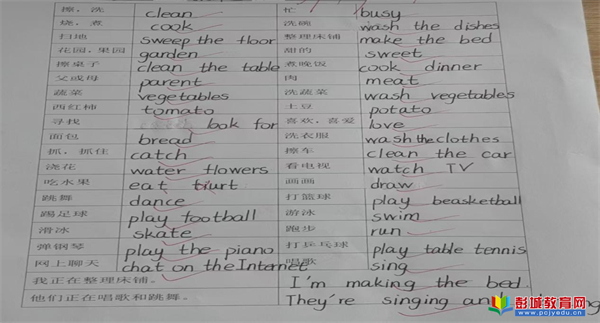 擦，洗 clean 忙 busy
烧，煮 cook 洗碗 wash the dishes
扫地 sweep the floor 整理床铺 make the bed
花园，果园 garden 甜的 sweet
擦桌子 clean the table 煮晚饭 cook dinner
父或母 parent 肉 meat
蔬菜 vegetables 洗蔬菜 wash vegetables
西红柿 tomato 土豆 potato
寻找 look for 喜欢，喜爱 love
面包 bread 洗衣服 wash the clothes
抓，抓住 catch 擦车 clean the car
浇花 water flowers 看电视 watch TV
吃水果 eat 画画 draw
跳舞 dance 打篮球 play beasketball
踢足球 play football 游泳 swim
滑冰 skate 跑步 run
弹钢琴 play the piano 打乒乓球 play table tennis
网上聊天 chat on the Internet 唱歌 sing
我正在整理床铺。 I'm making the bed.
他们正在唱歌和跳舞。 They're singing and
彭城教育网
www.pcjyedu.cn